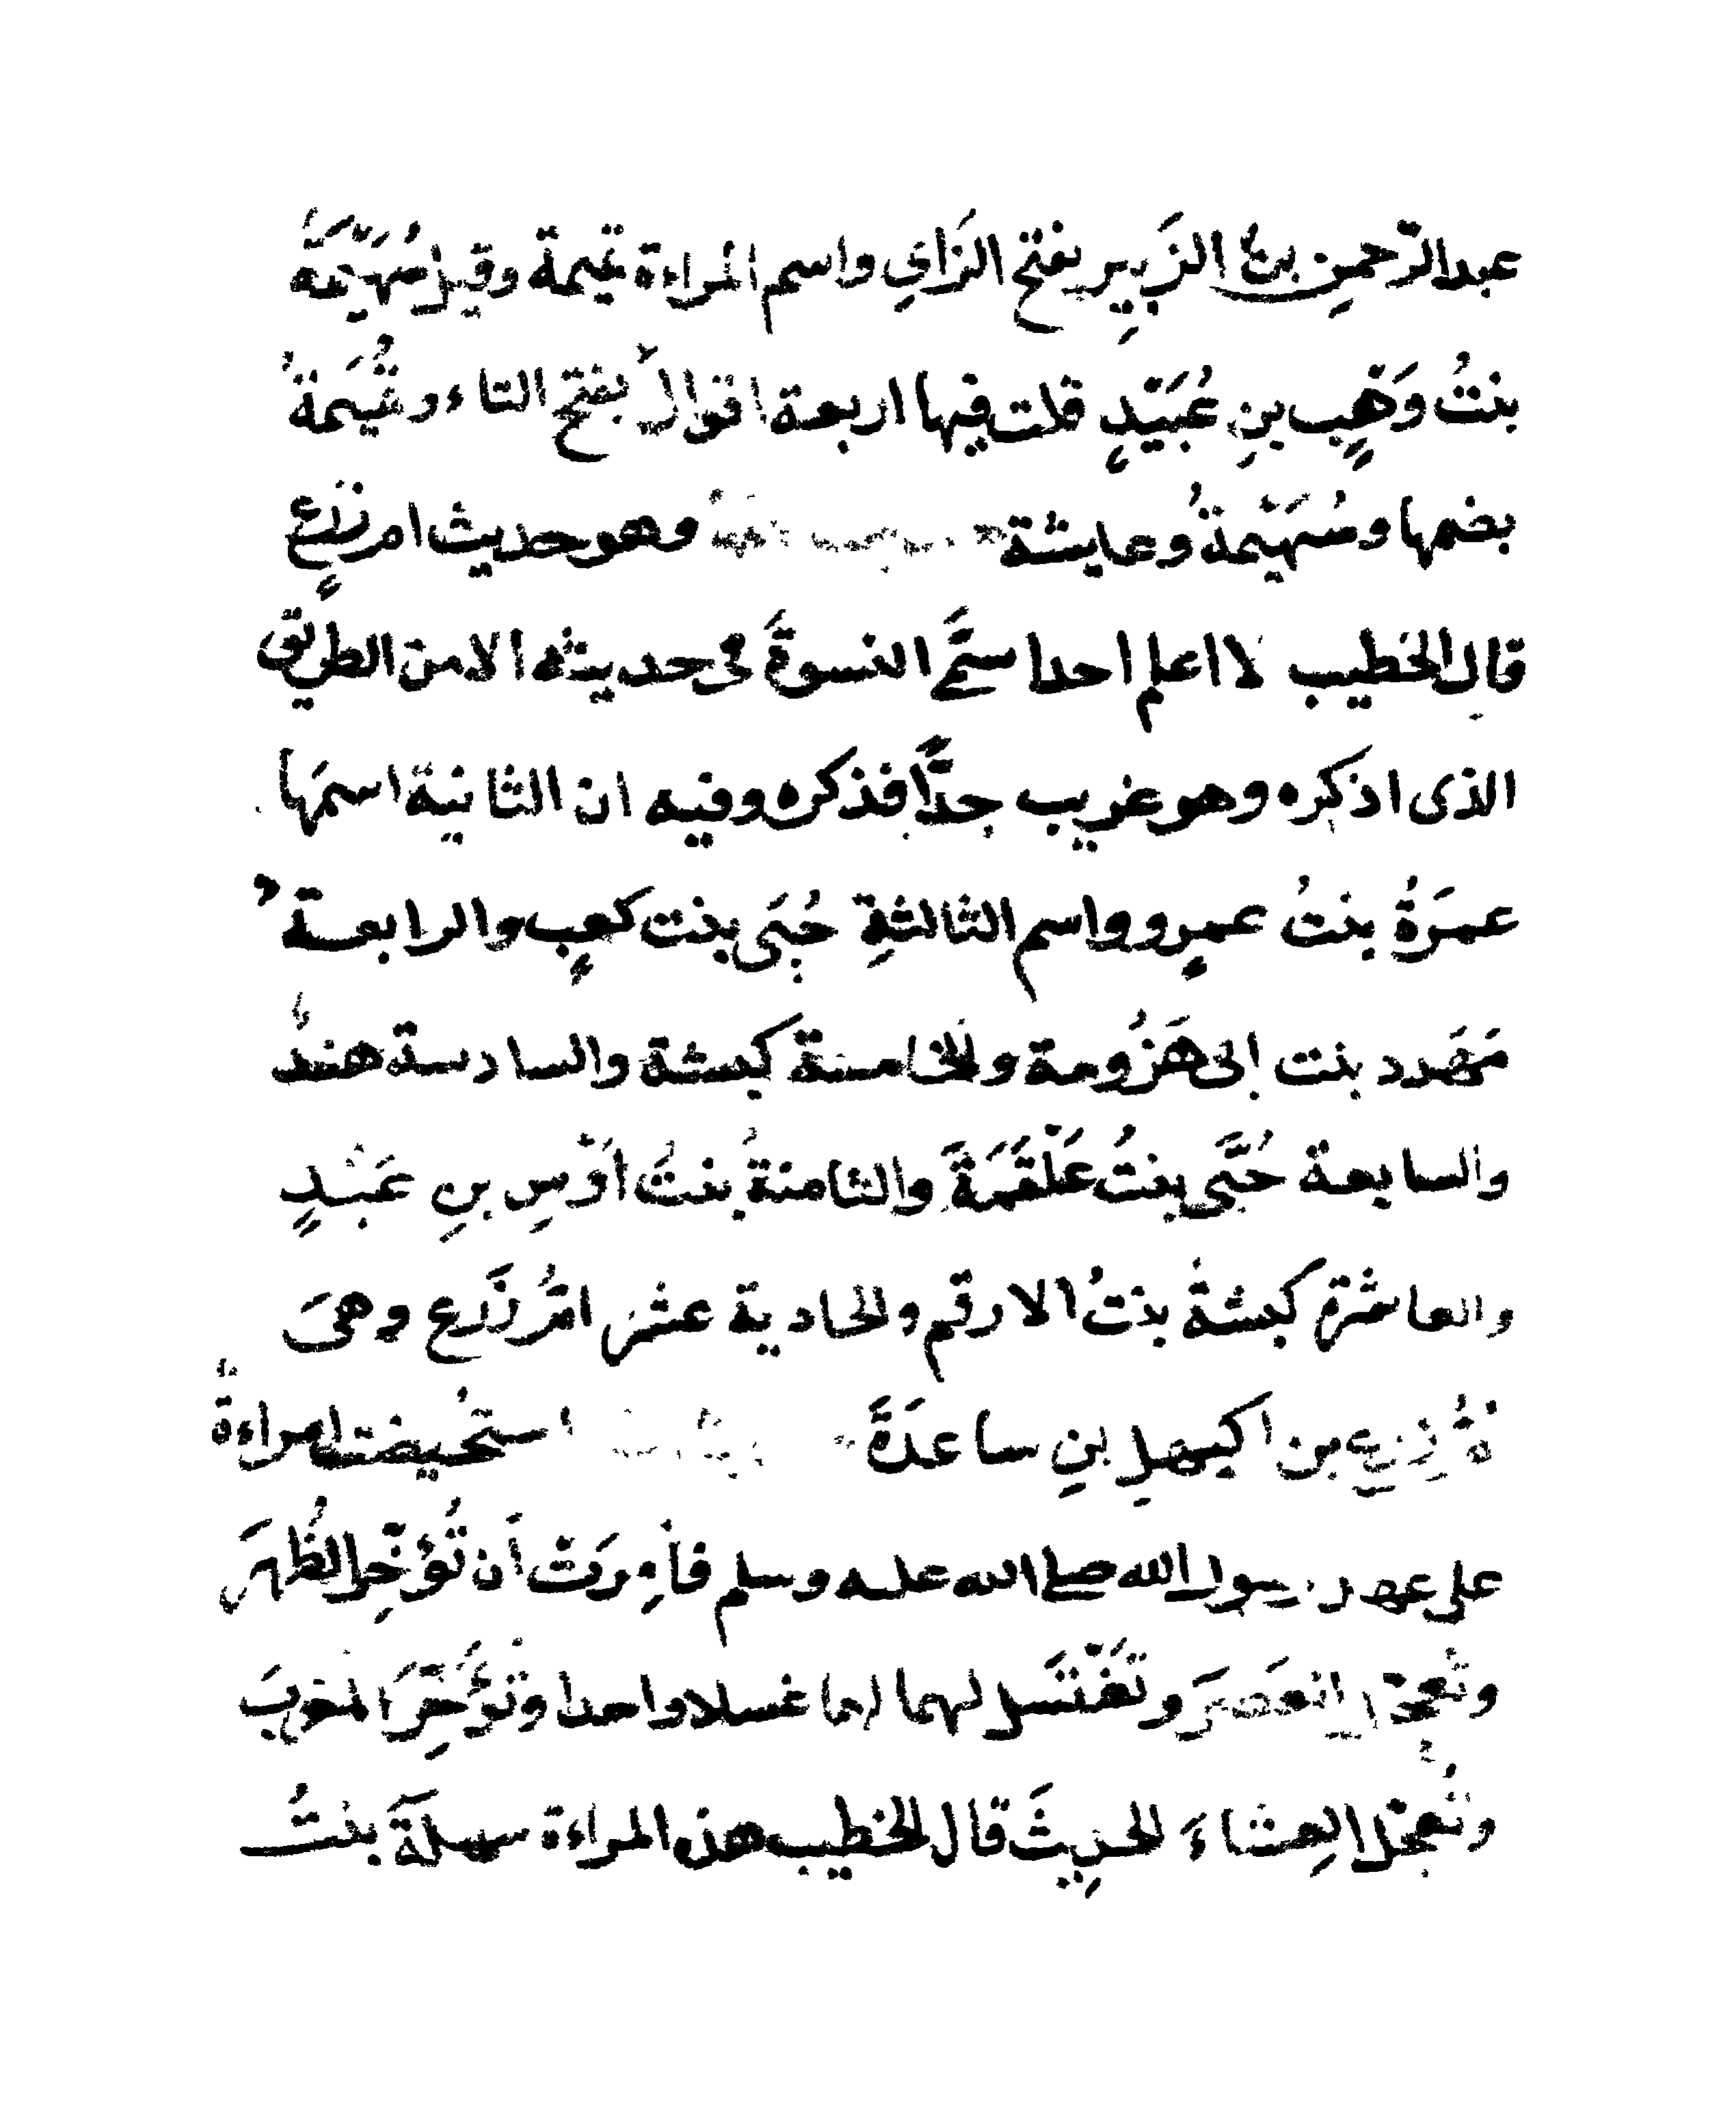 عبد الرّحمنِ بن الزَبِير بفتح الزَاي واسم المراءة تميمة وقيل سُهَيْمَةُ
بنتُ وَهْبٍ بنِ عُبَيْدٍ قلت فيها اربعة اقوال بفتح التاء وتُمَيمَةُ
بضمها وسُهَيْمةُ وعايشة وهو حديث ام زرعٍ
قال الخطيب لا اعلم احدا سَمَّى النسوةَ في حديثه الا من الطريق
الذى اذكره وهو غريب جدًّا فذكره وفيه ان الثانية اسمَها
عمرَةُ بنتُ عمرٍو واسم الثالثةِ حُبَى بنت كعبٍ والرابعةُ
مَهْدد بنت ابى هَزُومة والخامسة كبشة والسادسة هندُ
والسابعة حُبَّى بنتُ عَلْقَمَةَ والثامنةُ بنتُ أوْسِ بنِ عَبْدٍ
والعاشرة كبشةُ بنتُ الارقم والحادية عشر امُّ زَرع وهىَ
بن اكيهل بنِ ساعدَةَ استُحيضت امراءةٌ
على عهد رسول الله صلى الله عليه وسلم فأُمِرَتْ أن تُؤخِّر الظُهرَ
وتُعجّل العَصرَ وتَغْتَسل لهما غسلا واحدا وتؤَخِّرَ المغربَ
وتُعجّل العِشاءَ الحديثَ قال الخطيب هذه المراءة سهلةَ بنتُ